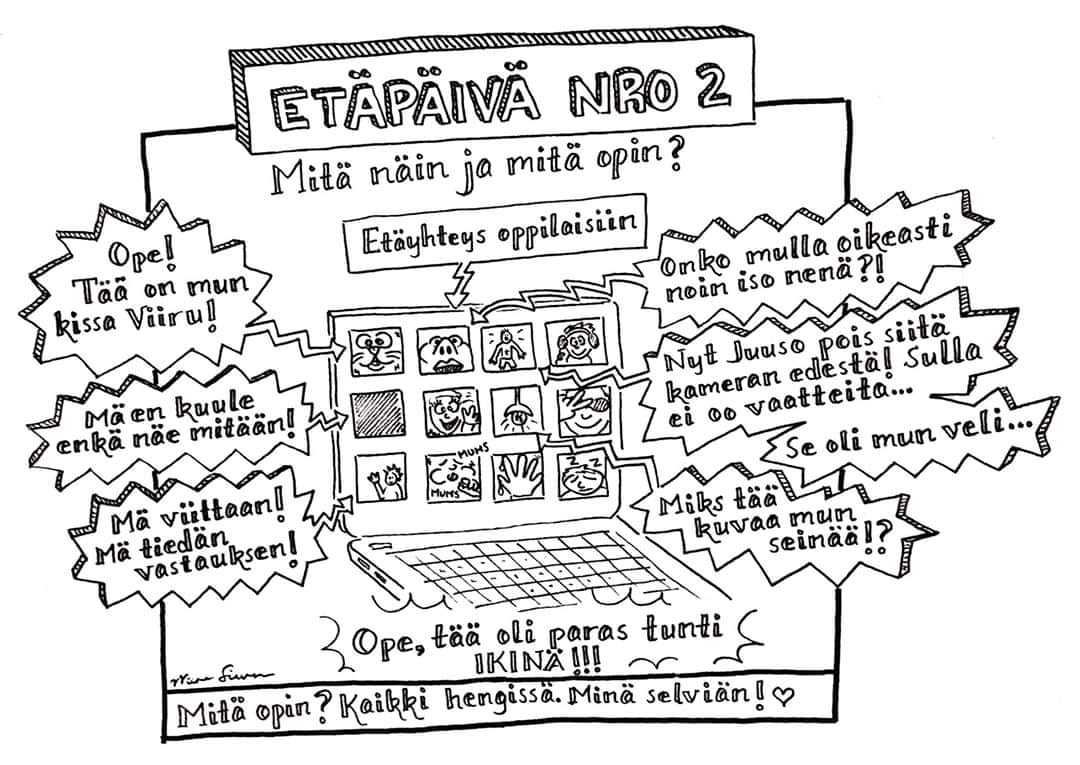 ETÄPÄIVÄ NRO 2
Mitä näin ja mitä opin?
Etäyhteys oppilaisiin
Ope!
Tää on mun
kissa Viiru!
Mä en kuule
enkä näe mitään!
Mä viittaan!
Mä tiedän
vastauksen!
Onko mulla oikeasti
noin iso nenä?!
Nyt Juuso pois siitä
kameran edestä! Sulla
ei oo vaatteita...
Se oli mun veli...
Miks tää
kuvaa mun
seinää!?
MUMS
MUMS
z z z
Ope, tää oli paras tunti
IKINÄ!!!
Mitä opin? Kaikki hengissä. Minä selviän! ♡